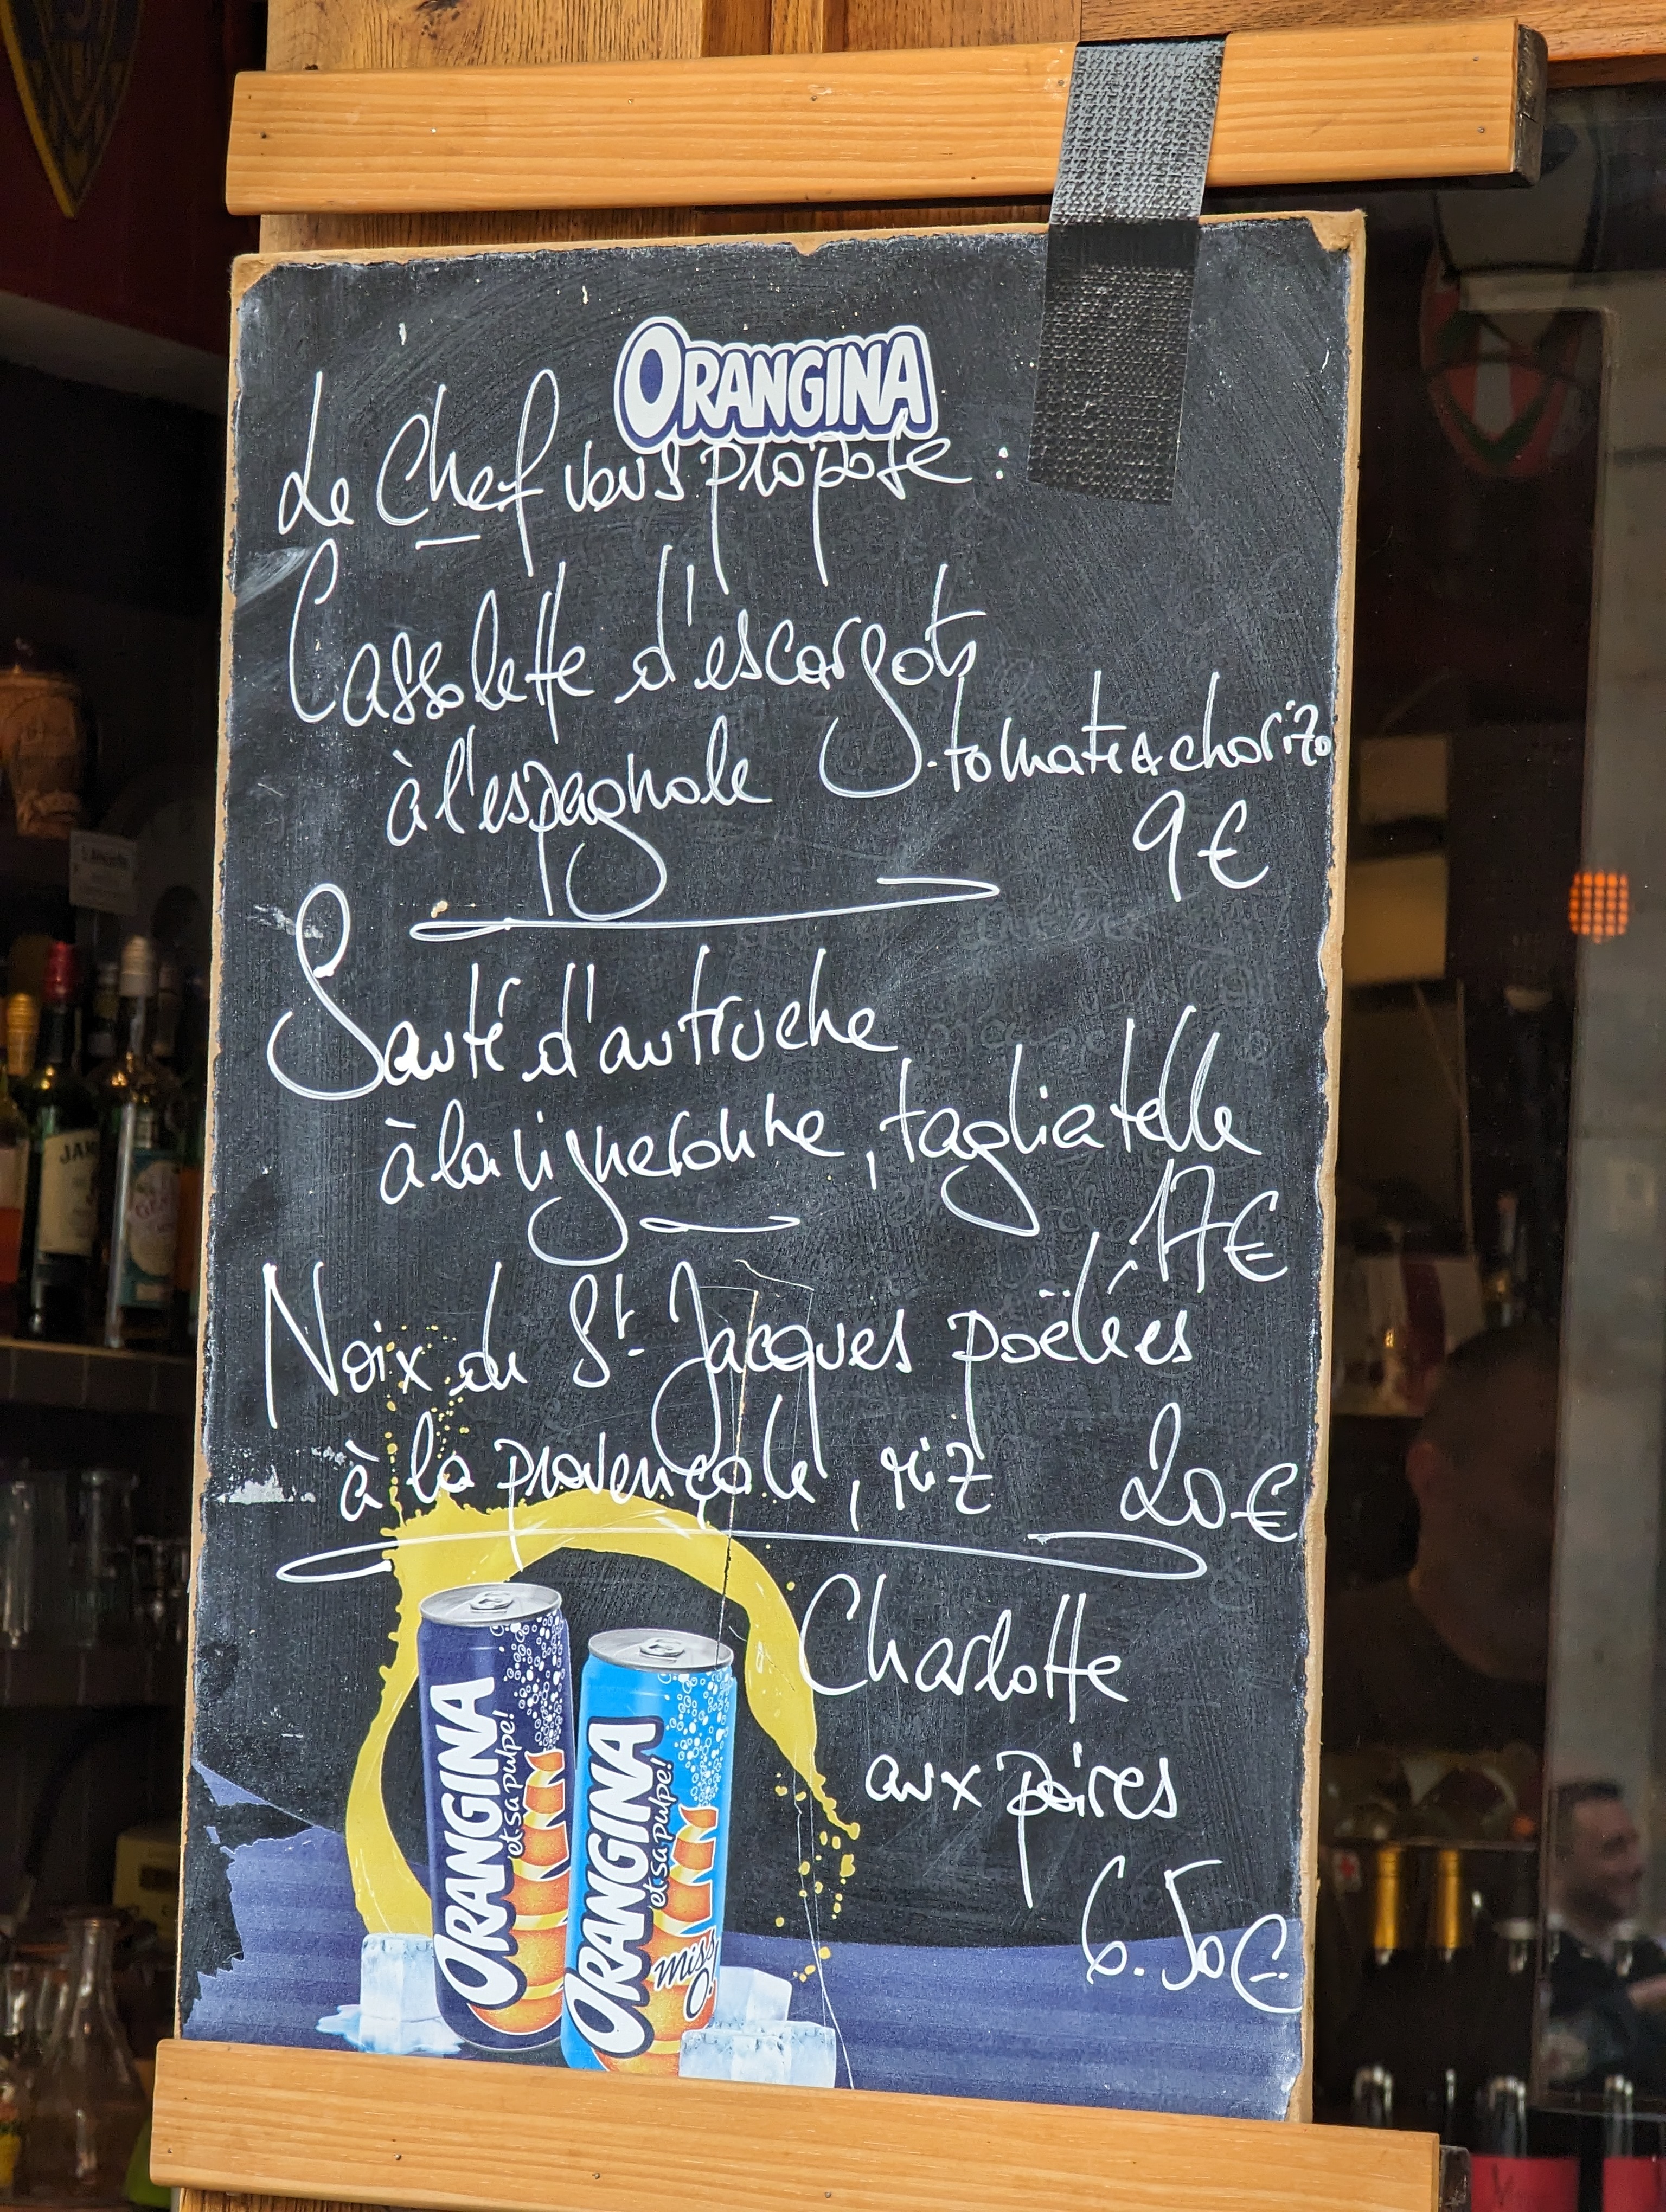 ORANGINA
Le Chef vous propose :
Cassolette d'escargots
à l'espagnole . tomate & chorizo
9 €
Sauté d'autruche
à la vigneronne, tagliatelle
17€
Noix de St. Jacques poëlées
à la provençale, riz 20€
Charlotte
aux poires
6.50€
ORANGINA
et sa pulpe!
ORANGINA
et sa pulpe!
miss O!
JAM